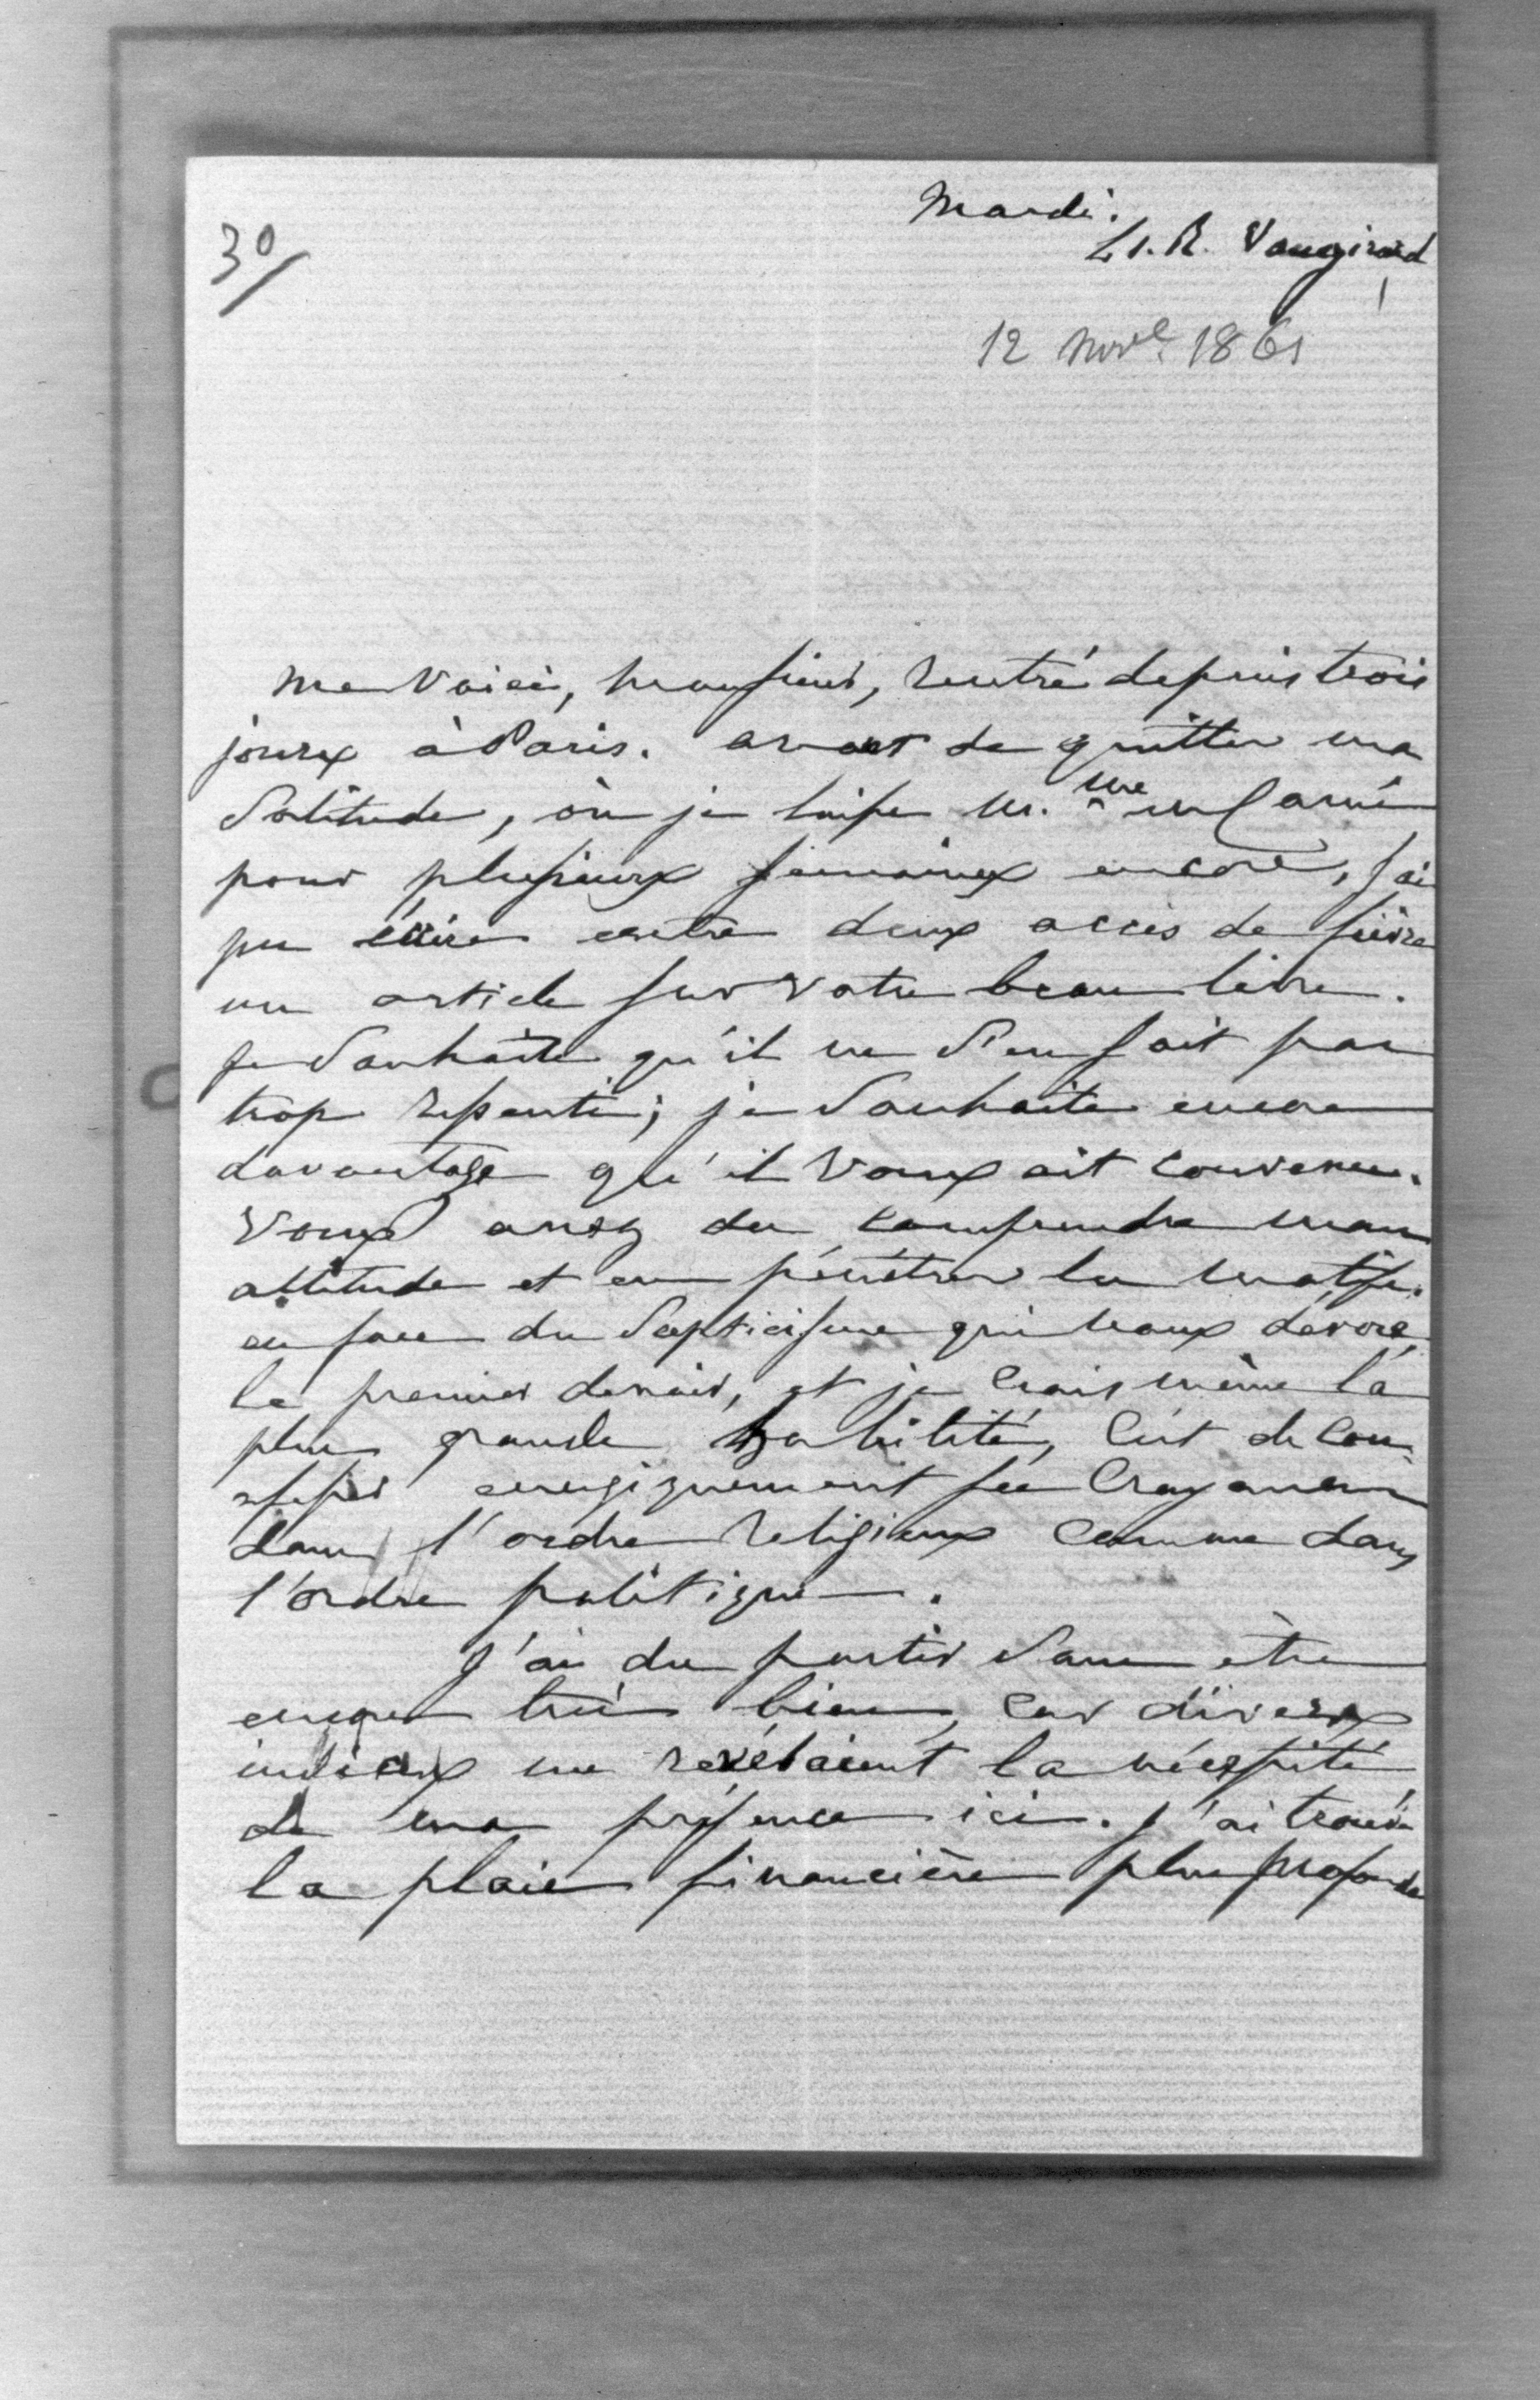 30/
Mardi.
R. Vaugirard
12 Nov.e 1861
Me voici, monsieur, rentré depuis trois
jours à Paris. avant de quitter ma
solitude, où je laisse M.me de Carné
pour plusieurs semaines encore, j'ai
pu écrire entre deux accès de fièvre
un article sur votre beau livre.
Je souhaite qu'il ne s'en soit pas
trop ressenti; je souhaite encore
davantage qu'il vous ait convenu.
Vous avez du comprendre mon
attitude et en pénétrer le motif.
en face du scepticisme qui nous dévore,
le premier devoir, et je crois même la
plus grande habilité, c'est de con-
fesser énergiquement ses croyances
dans l'ordre religieux comme dans
l'ordre politique.
J'ai du partir sans être
encore très bien, car divers
indices me révélaient la nécessité
de ma présence ici. J'ai trouvé
la plaie financière plus profonde